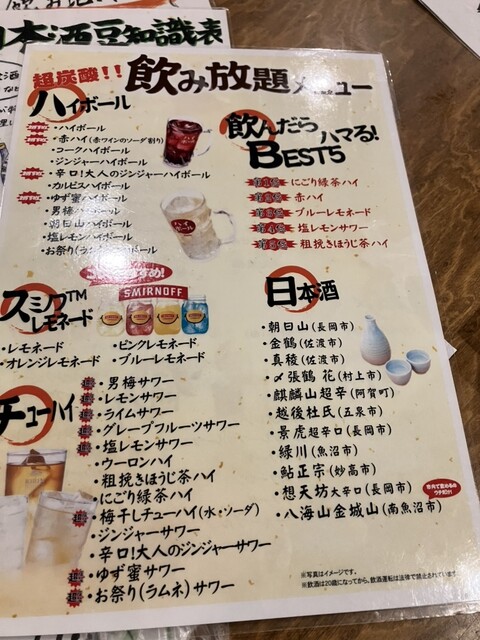 日本酒豆知識表
超炭酸!!飲み放題メニュー
ハイボール
・ハイボール
・赤ハイ(赤ワインのソーダ割り)
・コークハイボール
・ジンジャーハイボール
・辛口!大人のジンジャーハイボール
・カルピスハイボール
・ゆず蜜ハイボール
・男梅ハイボール
・朝日山ハイボール
・塩レモンハイボール
・お祭り(ラムネ)ハイボール
飲んだらハマる!
BEST5
第1位 にごり緑茶ハイ
第2位 赤ハイ
第3位 ブルーレモネード
第4位 塩レモンサワー
第5位 粗挽きほうじ茶ハイ
スミノフ™
レモネード
SMIRNOFF
・レモネード
・ピンクレモネード
・オレンジレモネード
・ブルーレモネード
チューハイ
・男梅サワー
・レモンサワー
・ライムサワー
・グレープフルーツサワー
・塩レモンサワー
・ウーロンハイ
・粗挽きほうじ茶ハイ
・にごり緑茶ハイ
・梅干しチューハイ(水・ソーダ)
・ジンジャーサワー
・辛口!大人のジンジャーサワー
・ゆず蜜サワー
・お祭り(ラムネ)サワー
日本酒
・朝日山(長岡市)
・金鶴(佐渡市)
・真稜(佐渡市)
・〆張鶴 花(村上市)
・麒麟山超辛(阿賀町)
・越後杜氏(五泉市)
・景虎超辛口(長岡市)
・緑川(魚沼市)
・鮎正宗(妙高市)
・想天坊大辛口(長岡市)
・八海山金城山(南魚沼市)
※写真はイメージです。
※飲酒は20歳になってから。飲酒運転は法律で禁止されています。